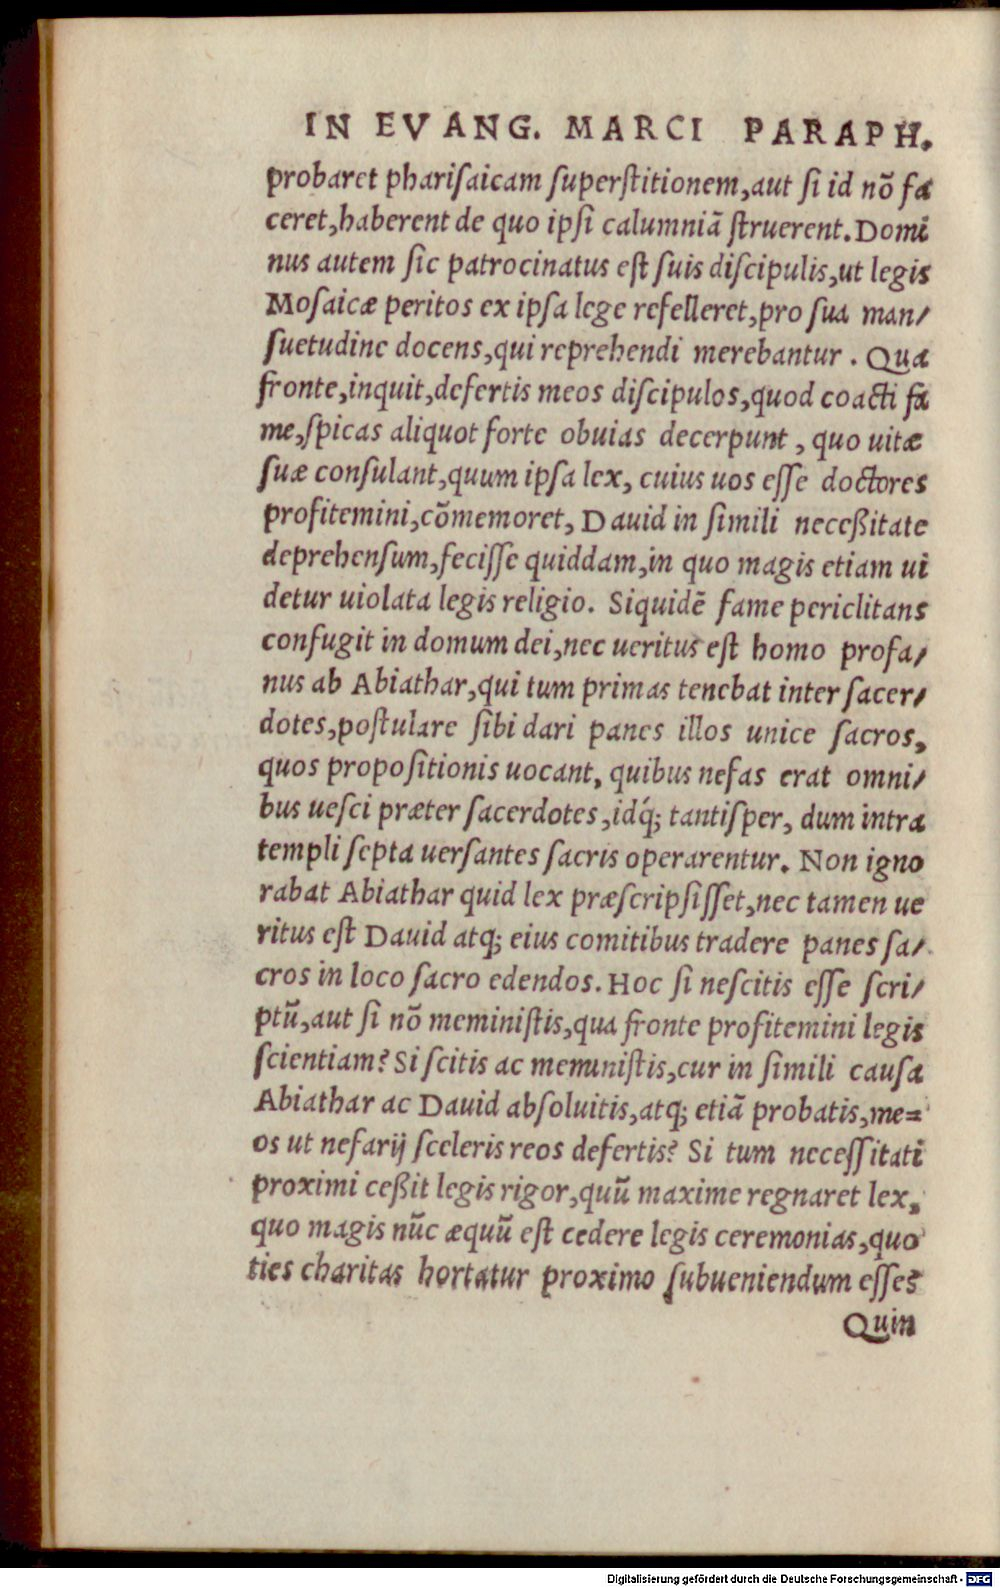 IN EVANG. MARCI PARAPH.
probaret phariſaicam ſuperſtitionem, aut ſi id nõ fa
ceret, haberent de quo ipſi calumniã ſtruerent. Domi
nus autem ſic patrocinatus eſt ſuis diſcipulis, ut legis
Moſaicæ peritos ex ipſa lege refelleret, pro ſua man/
ſuetudine docens, qui reprehendi merebantur. Qua
fronte, inquit, defertis meos diſcipulos, quod coacti fa
me, ſpicas aliquot forte obuias decerpunt, quo uitæ
ſuæ conſulant, quum ipſa lex, cuius uos eſſe doctores
profitemini, cõmemoret, Dauid in ſimili neceßitate
deprehenſum, feciſſe quiddam, in quo magis etiam ui
detur uiolata legis religio. Siquidẽ fame periclitans
confugit in domum dei, nec ueritus eſt homo profa/
nus ab Abiathar, qui tum primas tenebat inter ſacer/
dotes, poſtulare ſibi dari panes illos unice ſacros,
quos propoſitionis uocant, quibus nefas erat omni/
bus ueſci præter ſacerdotes, idq́; tantiſper, dum intra
templi ſepta uerſantes ſacris operarentur. Non igno
rabat Abiathar quid lex præſcripſiſſet, nec tamen ue
ritus eſt Dauid atq; eius comitibus tradere panes ſa/
cros in loco ſacro edendos. Hoc ſi neſcitis eſſe ſcri/
ptũ, aut ſi nõ meminiſtis, qua fronte profitemini legis
ſcientiam? Si ſcitis ac meminiſtis, cur in ſimili cauſa
Abiathar ac Dauid abſoluitis, atq; etiã probatis, me=
os ut nefarij ſceleris reos defertis? Si tum neceſſitati
proximi ceßit legis rigor, quũ maxime regnaret lex,
quo magis nũc æquũ eſt cedere legis ceremonias, quo
ties charitas hortatur proximo ſubueniendum eſſe?
Quin
Digitalisierung gefördert durch die Deutsche Forschungsgemeinschaft - DFG